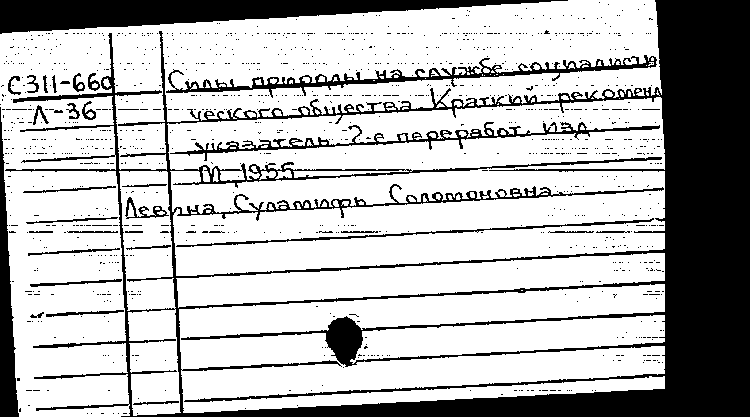 С311-660 Силы природы на службе социалисти
Л-36 ческого общества. Краткий рекоменд
указатель. 2-е переработ. изд.
М., 1955.
Левина, Суламифь Соломоновна.